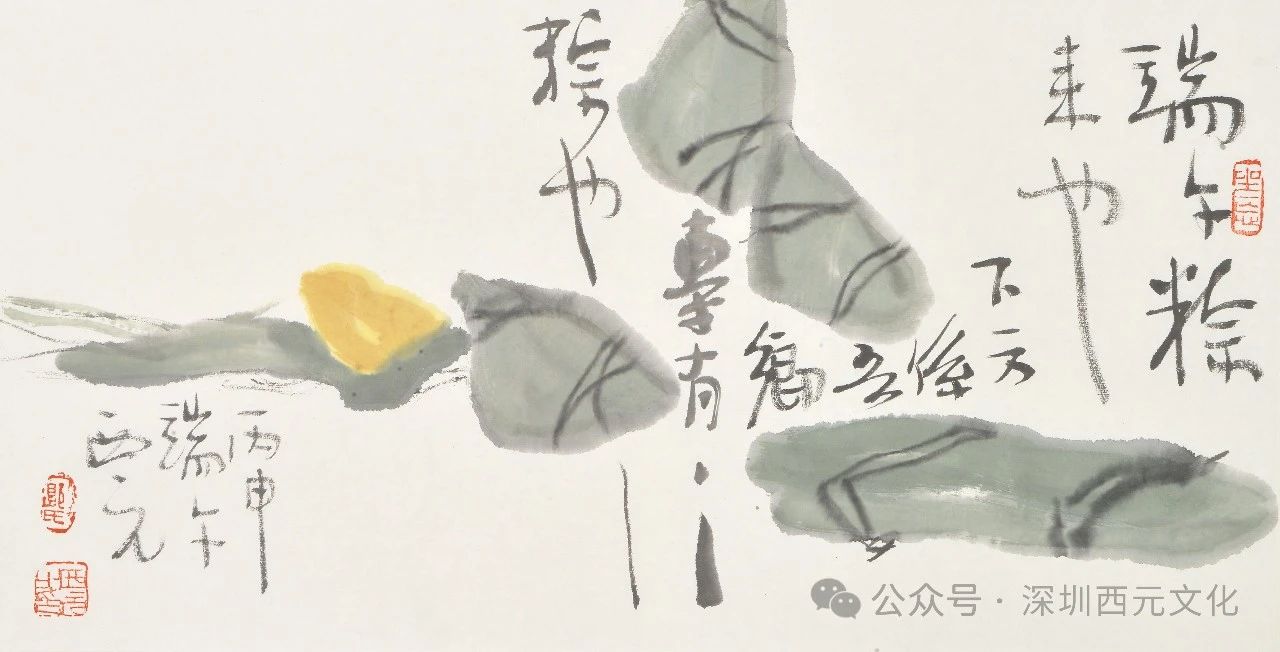 端午粽
来也
下方
係
吾
鄉
有
粽也
丙申
端午
西元
公众号·深圳西元文化